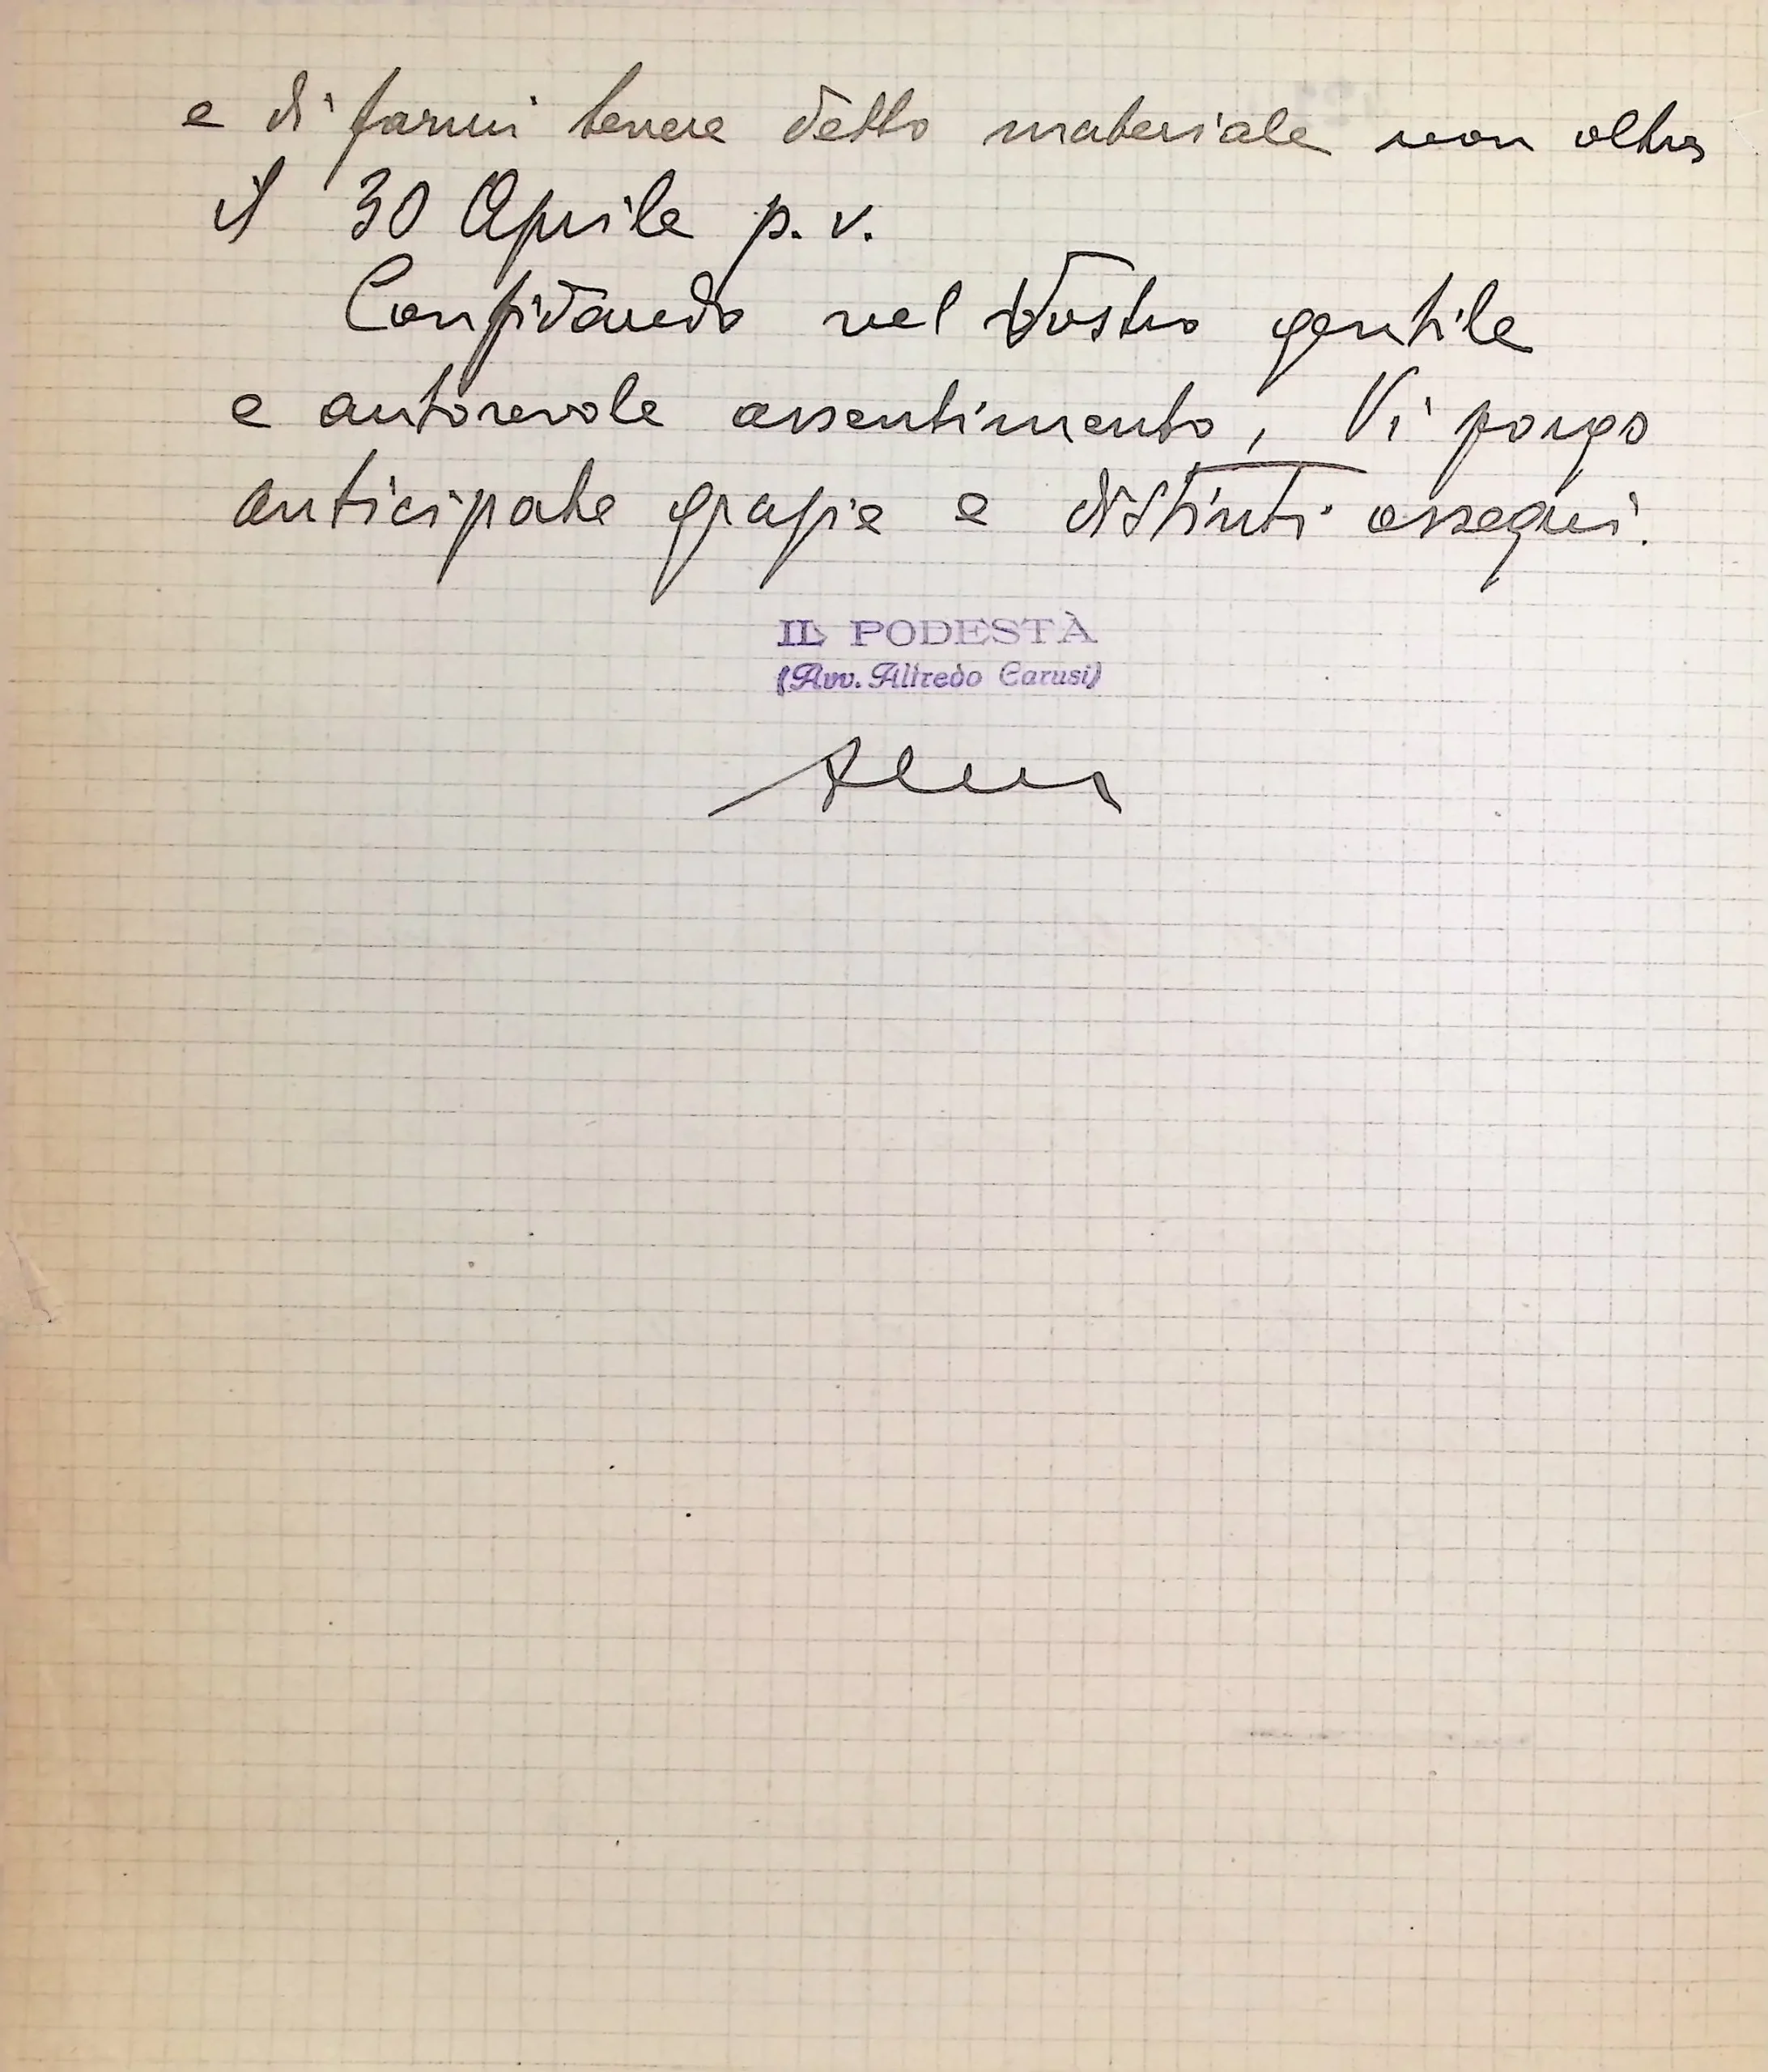 e di farmi tenere detto materiale non oltre
il 30 Aprile p. v.
Confidando nel Vostro gentile
e autorevole assentimento, Vi porgo
anticipate grazie e distinti ossequi.
IL PODESTÀ
(Avv. Alfredo Carusi)